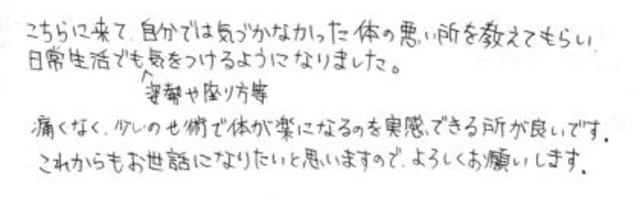 こちらに来て、自分では気づかなかった体の悪い所を教えてもらい、
日常生活でも気をつけるようになりました。
姿勢や座り方等
痛くなく、少しのせ術で体が楽になるのを実感できる所が良いです。
これからもお世話になりたいと思いますので、よろしくお願いします。